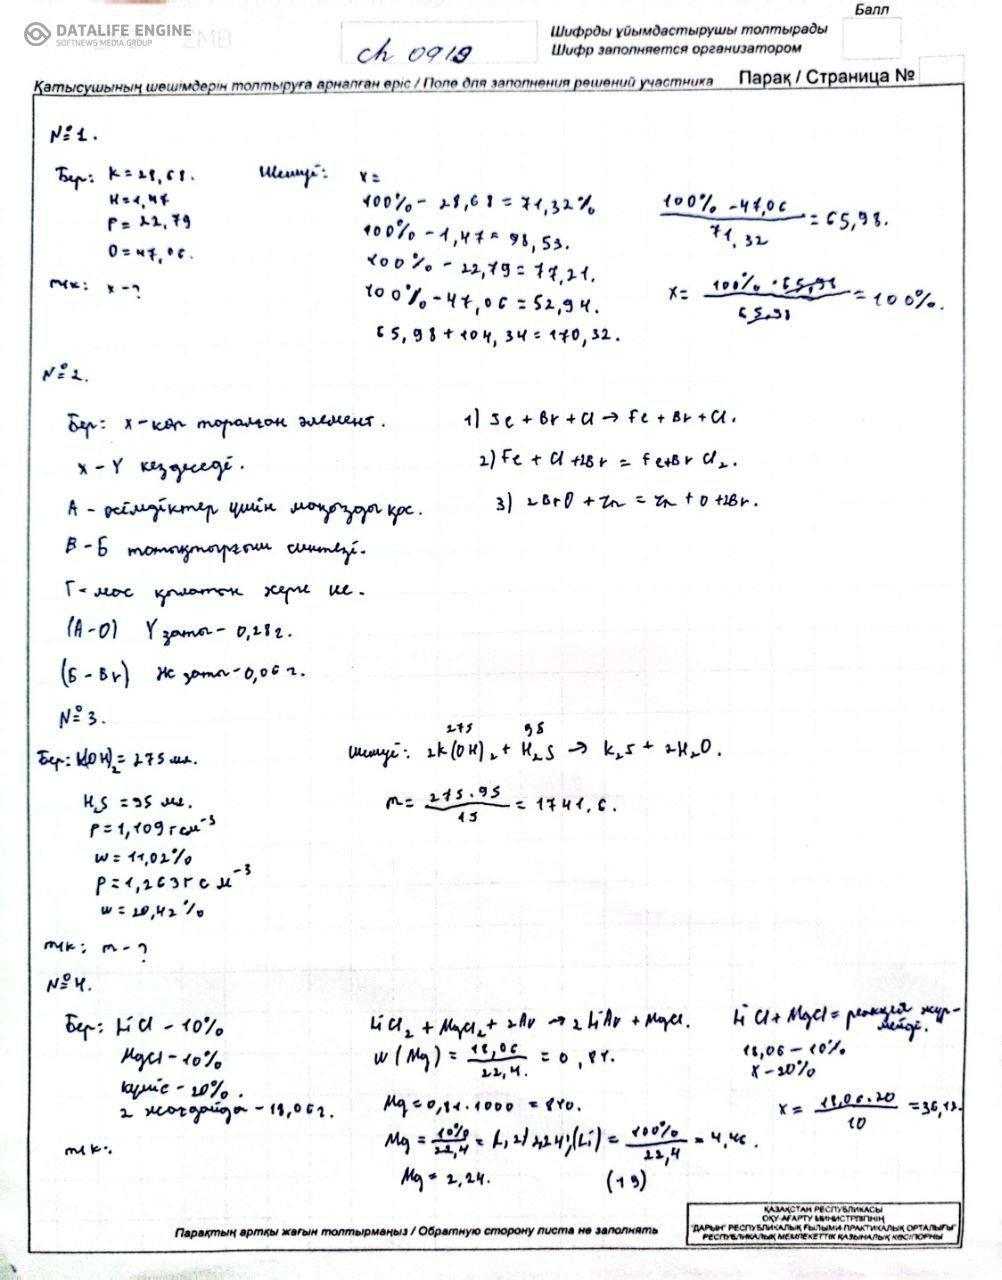 DATALIFE ENGINE
SOFTNEWS MEDIA GROUP
ch 0919
Балл
Шифрды ұйымдастырушы толтырады
Шифр заполняется организатором
Қатысушының шешімдерін толтыруға арналған өріс / Поле для заполнения решений участника
Парақ / Страница №
№1.
Бер: K=28,68.
H=1,47
P=22,79
O=47,06.
т/к: x-?
Шешуі: x=
100% - 28,68 = 71,32%
100% - 1,47 = 98,53.
100% - 22,79 = 77,21.
100% - 47,06 = 52,94.
65,98 + 104,34 = 170,32.
100% - 47,06 / 71,32 = 65,98.
x= 100% · 65,98 / 65,98 = 100%.
№2.
Бер: x - көп таралған элемент.
x - Y кездеседі.
А - өсімдіктер үшін маңызды қос.
В - Б тотықтырғыш синтезі.
Г - мос қолатын жерн ие.
(А-О) Y заты - 0,28г.
(Б - Br) Ж заты - 0,06г.
1) Fe + Br + Cl → Fe + Br + Cl.
2) Fe + Cl + 2Br = Fe+Br Cl₂.
3) 2BrO + Zn = Zn + O + 2Br.
№3.
Бер: K(OH)₂ = 275 мл.
H₂S = 95 мл.
P = 1,109 г см⁻³
w = 11,02%
P = 1,263 г с м⁻³
w = 20,42%
т/к: m - ?
Шешуі: 2K(OH)₂ + H₂S → K₂S + 2H₂O.
275 95
m = 275·95 / 15 = 1741,6.
№4.
Бер: LiCl - 10%
MgCl - 10%
күміс - 20%.
2 жағдайда - 18,06г.
т/к:
LiCl₂ + MgCl₂ + 2Av → 2LiAv + MgCl.
w(Mg) = 18,06 / 22,4. = 0,81.
Mg = 0,81·1000 = 810.
(Li) = 100% / 22,4 = 4,46.
Mg = 2,24.
(19)
LiCl + MgCl = реакция жүр-
мейді.
18,06 - 10%
x - 20%
x = 18,06·20 / 10 = 36,12.
Парақтың артқы жағын толтырмаңыз / Обратную сторону листа не заполнять
ҚАЗАҚСТАН РЕСПУБЛИКАСЫ
ОҚУ-АҒАРТУ МИНИСТРЛІГІНІҢ
"ДАРЫН" РЕСПУБЛИКАЛЫҚ ҒЫЛЫМИ-ПРАКТИКАЛЫҚ ОРТАЛЫҒЫ
РЕСПУБЛИКАЛЫҚ МЕМЛЕКЕТТІК ҚАЗЫНАЛЫҚ КӘСІПОРНЫ